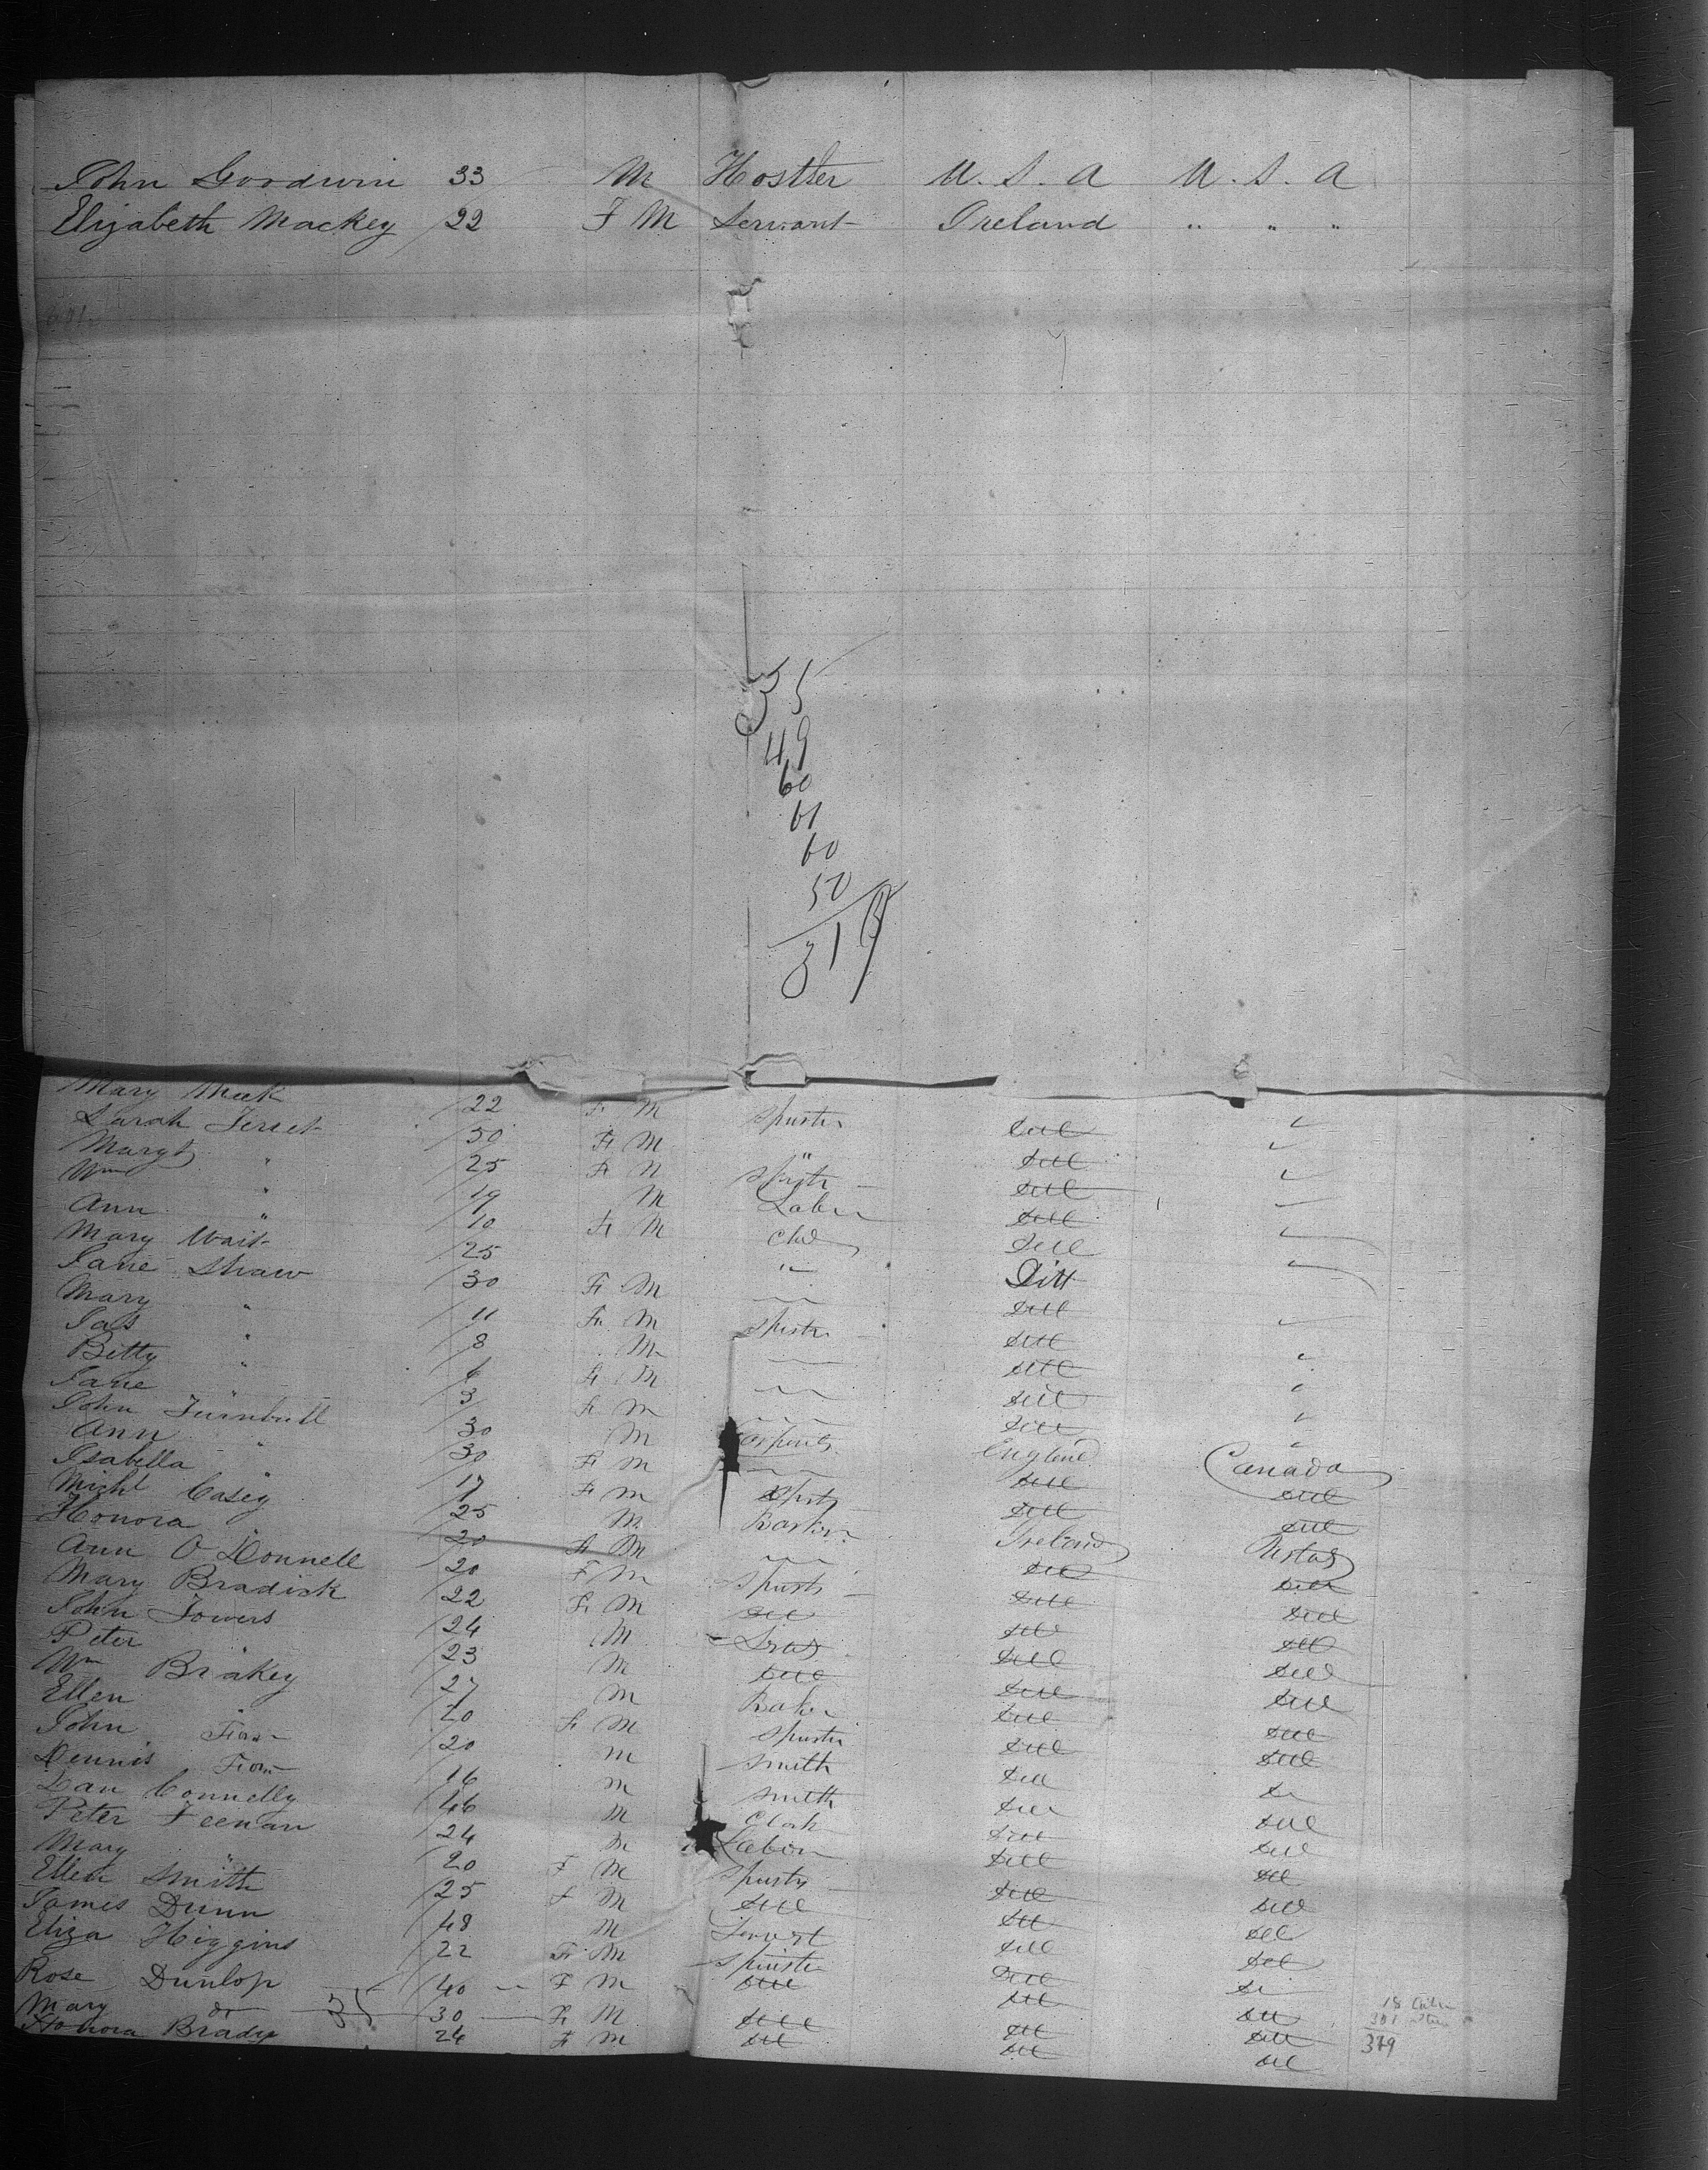 John Goodwin 33 M Hostler U.S.A U.S.A
Elizabeth Mackey 22 F M Servant Ireland " " "
35
49
60
61
60
50
319
Mary Meek 22 F M Spinster Ditto "
Sarah 50 F M " Ditto "
Margt " 25 F M Spinster Ditto "
Wm " 19 M Labr Ditto "
Ann " 10 F M Chd Ditto "
Mary Wait 25 " Ditto "
Jane Shaw 30 F M Ditto
Mary " 11 F M Spinster Ditto
Jas " 8 M Ditto "
Betty " 6 F M Ditto "
Jane " 3 F M Ditto "
John Turnbull 30 M Carpentr England Canada
Ann " 30 F M Ditto Ditto
Isabella " 17 F M Spinstr Ditto Ditto
Michl Casey 25 M Ireland
Honora " 20 F M Ditto Ditto
Ann O Donnell 20 F M Spinstr Ditto Ditto
Mary Bradick 22 F M Ditto Ditto Ditto
John Towers 24 M Ditto Ditto
Peter " 23 M Ditto Ditto Ditto
Wm Brakey 27 M Baker Ditto Ditto
Ellen " 20 F M Spinstr Ditto Ditto
John 20 M Smith Ditto Ditto
Dennis 16 M Smith Ditto
Dan Connelly 46 M Clerk Ditto Ditto
Peter Feenan 24 M Labor Ditto Ditto
Mary " 20 F M Spinstr Ditto Ditto
Ellen Smith 25 F M Ditto Ditto Ditto
James Dunn 48 M Ditto Ditto
Eliza Higgins 22 F M Spinster Ditto Ditto
Rose Dunlop 40 F M Ditto Ditto
Mary do 35 30 F M Ditto Ditto Ditto
Honora Brady 24 F M Ditto Ditto Ditto
18
301
319